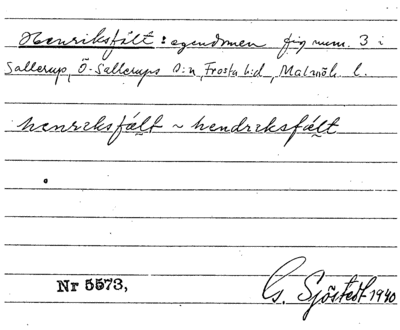 Henriksfält: egendomen fig num. 3 i
Sallerup, Ö-Sallerups s:n, Frosta hd, Malmöh. l.
henreksfält ~ hendreksfält
Nr 5573,
G. Sjöstedt 1940